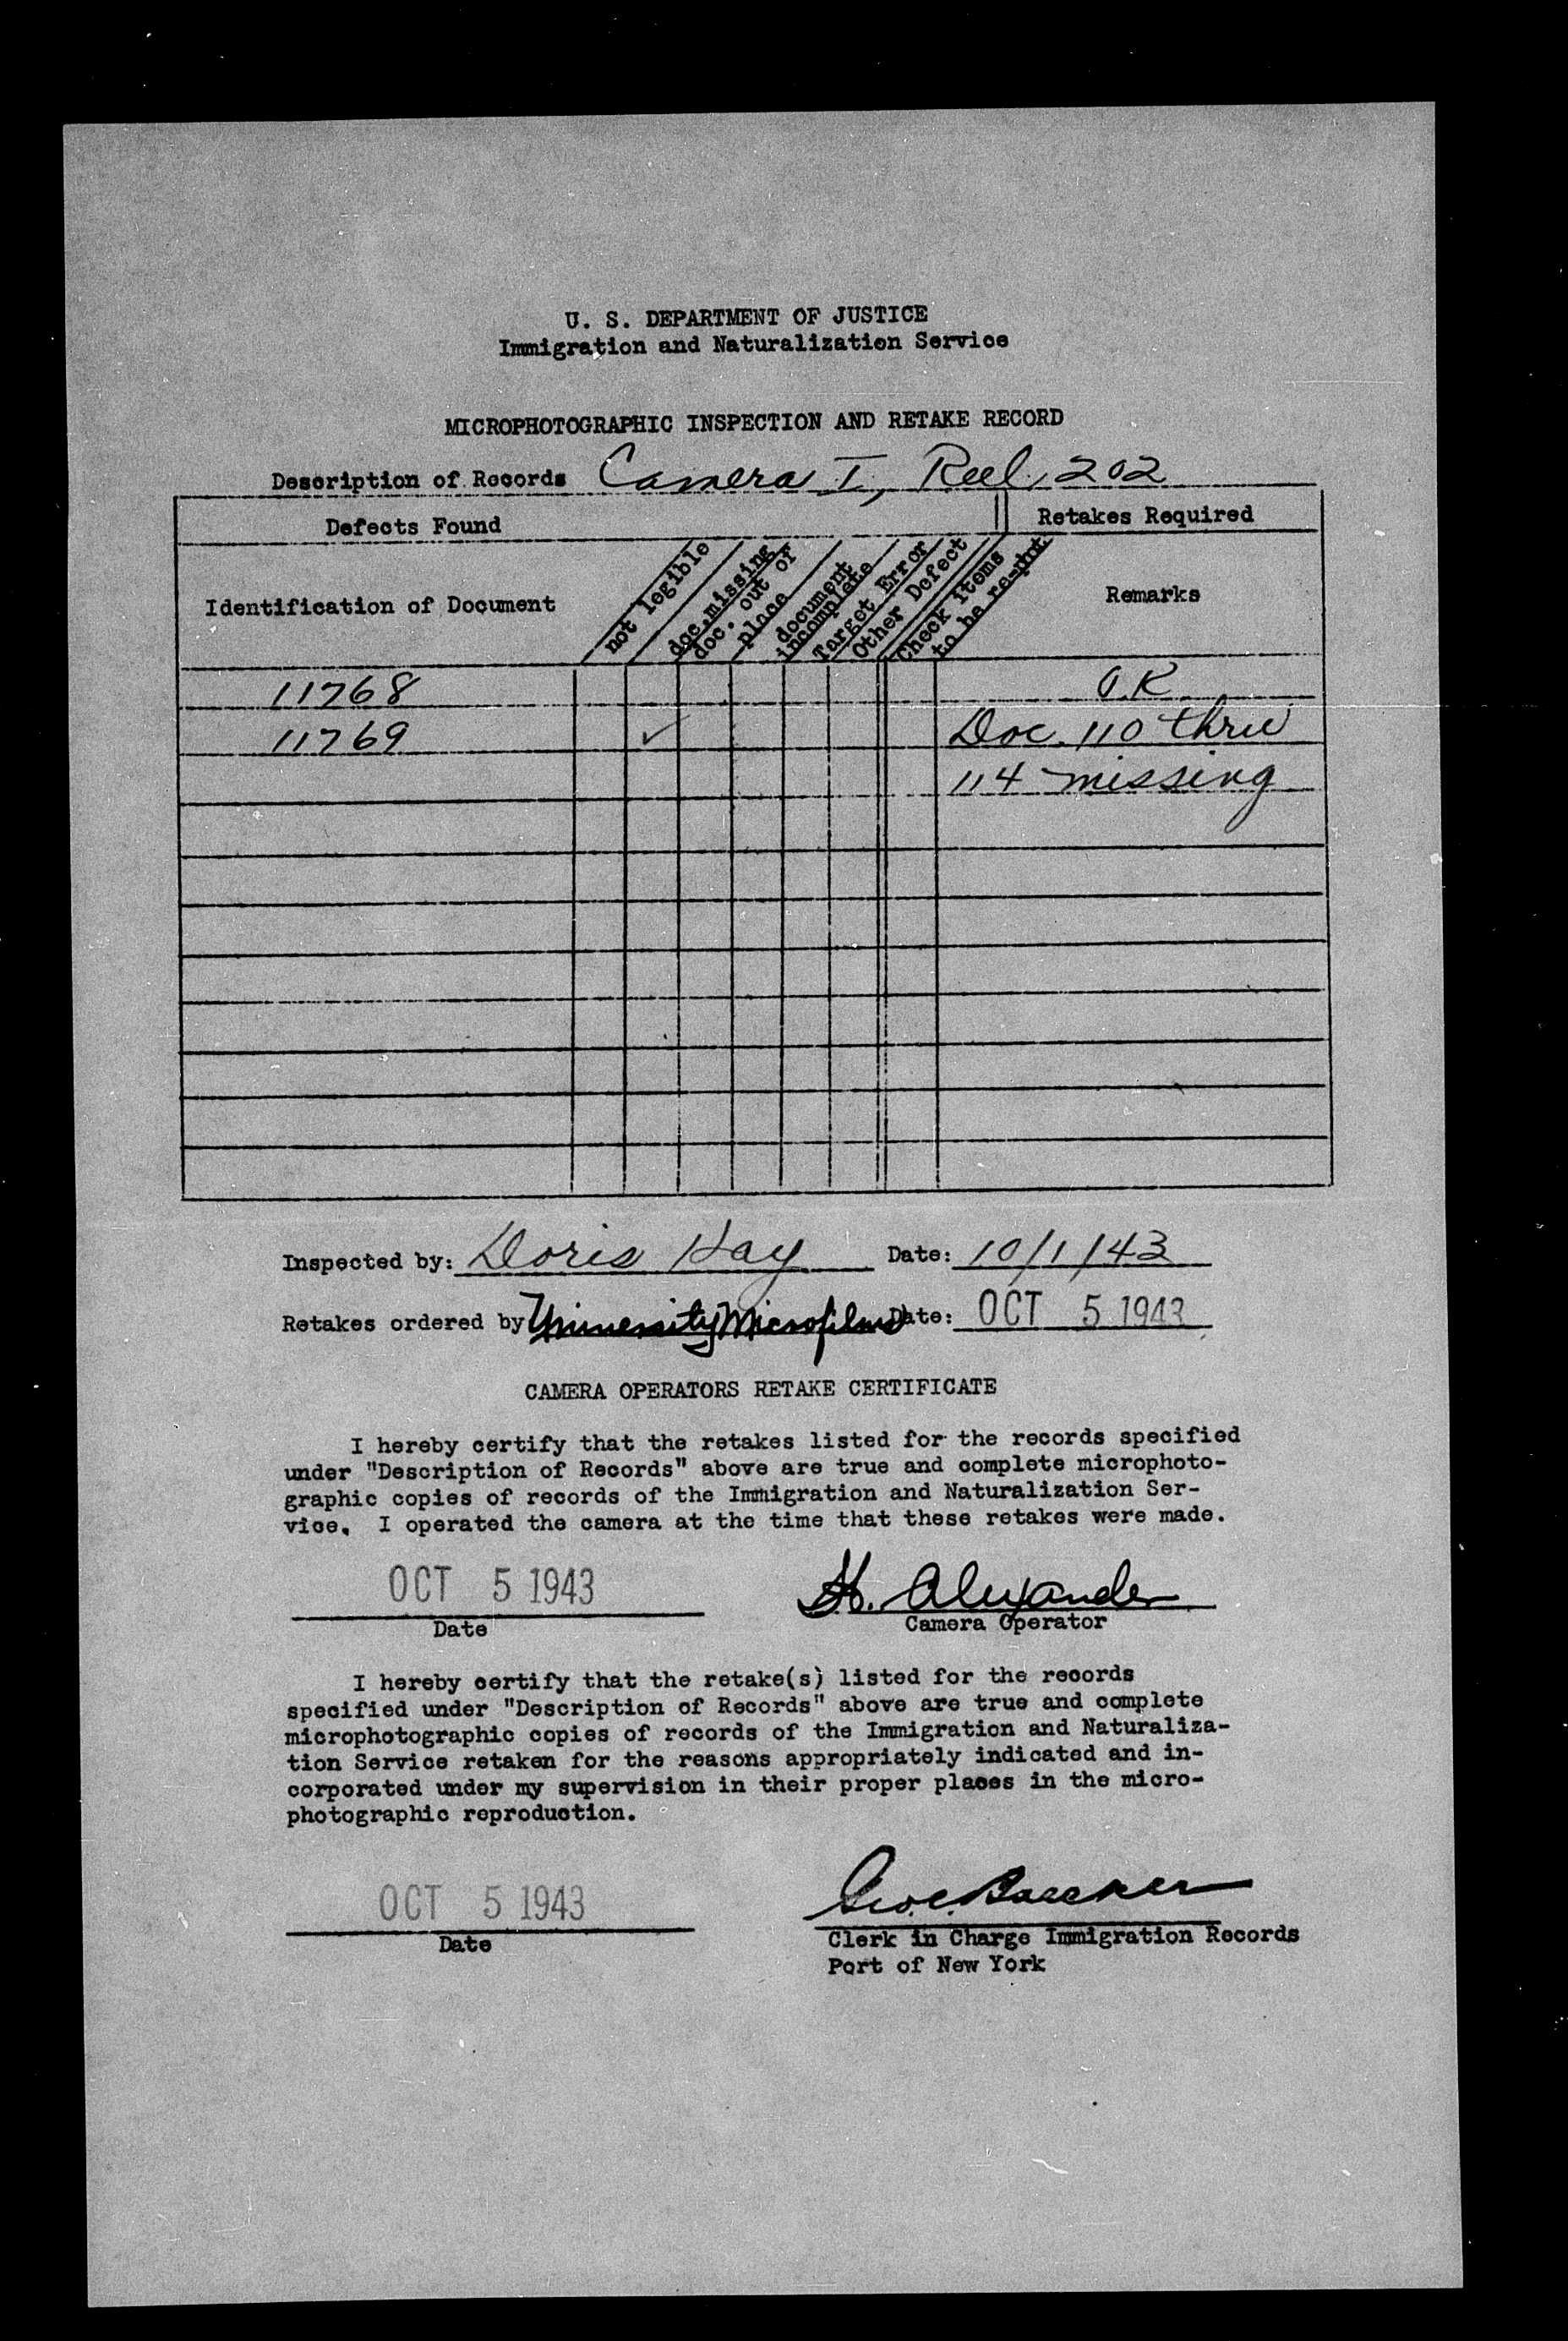 U. S. DEPARTMENT OF JUSTICE
Immigration and Naturalization Service
MICROPHOTOGRAPHIC INSPECTION AND RETAKE RECORD
Description of Records Camera I, Reel 202
Defects Found Retakes Required
Identification of Document not legible doc. missing doc. out of place document incomplete Target Error Other Defect Check items to be re-phot. Remarks
11768 O.K
11769 ✓ Doc. 110 thru
114 missing
Inspected by: Doris Hay Date: 10/1/43
Retakes ordered by University Microfilms Date: OCT 5 1943
CAMERA OPERATORS RETAKE CERTIFICATE
I hereby certify that the retakes listed for the records specified
under "Description of Records" above are true and complete microphoto-
graphic copies of records of the Immigration and Naturalization Ser-
vice. I operated the camera at the time that these retakes were made.
OCT 5 1943 H. Alexander
Date Camera Operator
I hereby certify that the retake(s) listed for the records
specified under "Description of Records" above are true and complete
microphotographic copies of records of the Immigration and Naturaliza-
tion Service retaken for the reasons appropriately indicated and in-
corporated under my supervision in their proper places in the micro-
photographic reproduction.
OCT 5 1943 Geo. C.
Date Clerk in Charge Immigration Records
Port of New York